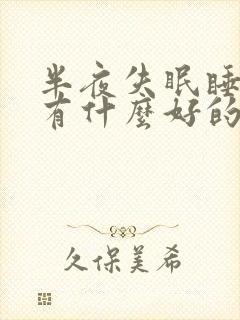 半夜失眠睡
有什麼好的
久保美希